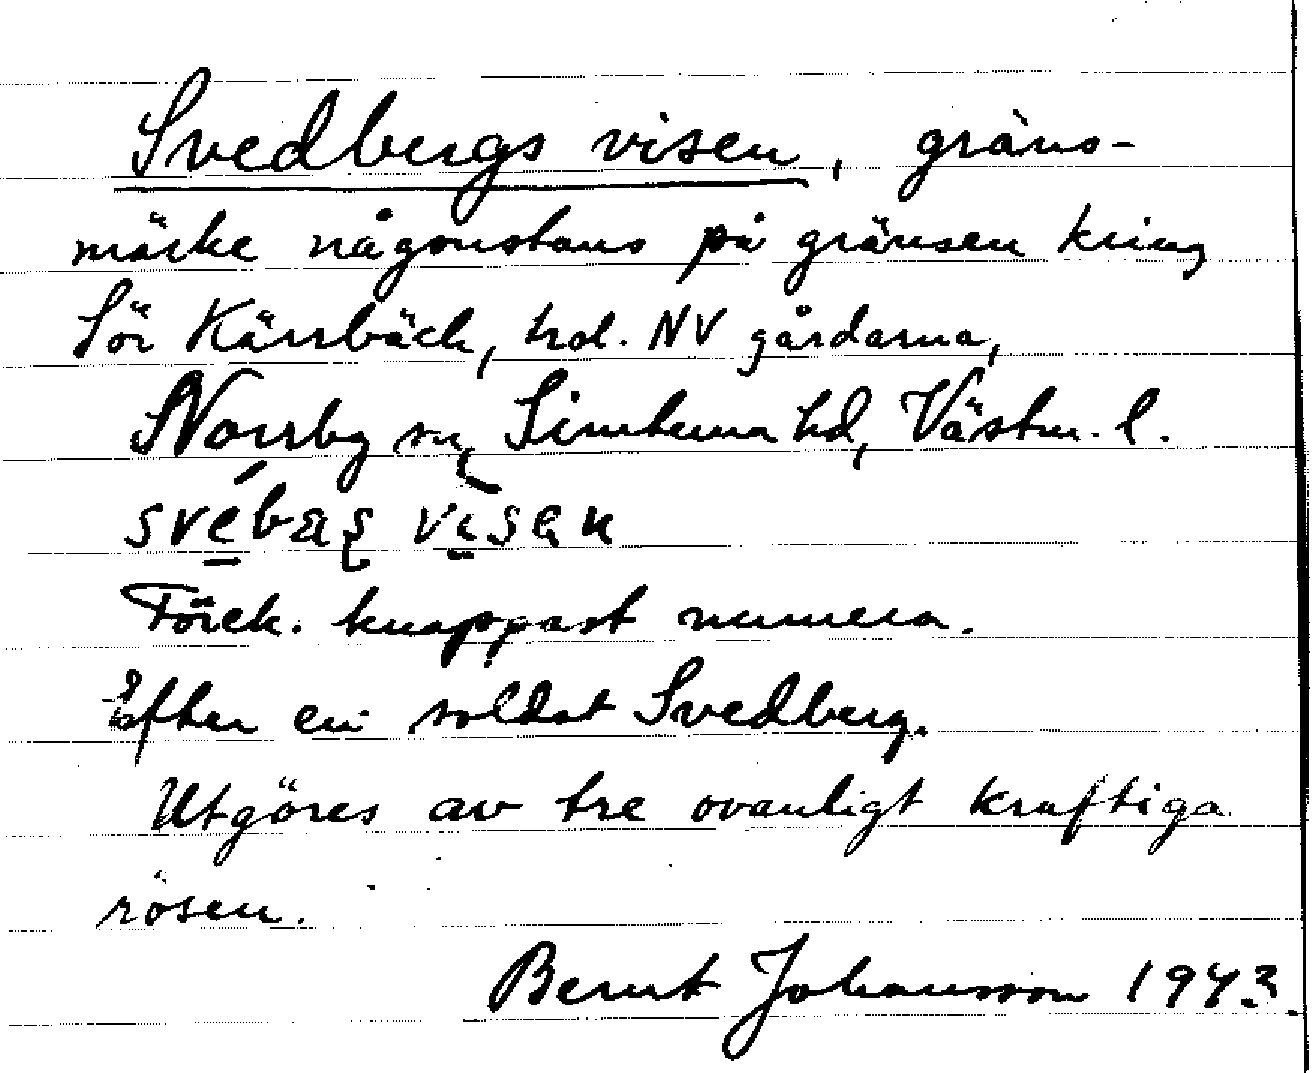 Svedbergs visen, gräns-
märke någonstans på gränsen kring
Sör Kärrbäck, trol. NV gårdarna,
Norrby sn, Simtuna hd, Västm. l.
Förek. knappast numera.
Efter en soldat Svedberg.
Utgöres av tre ovanligt kraftiga
rösen.
Bernt Johansson 1943